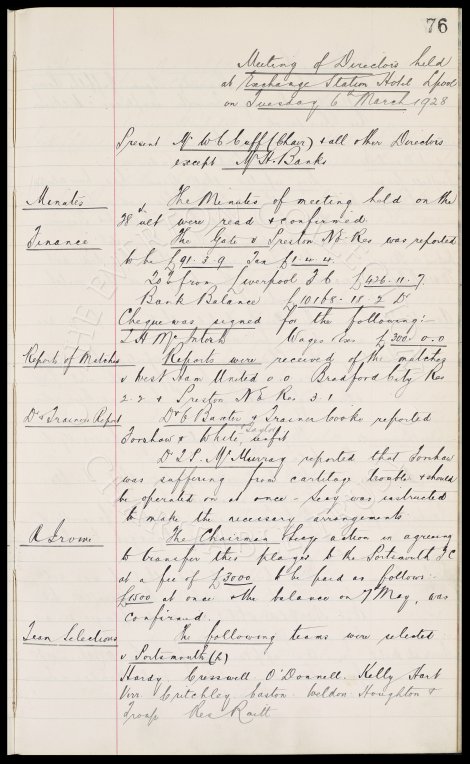 76
Meeting of Directors held
at Exchange Station Hotel Lpool
on Tuesday 6th March 1928
Present Mr W C Cuff (Chair) & all other Directors
except Mr H. Banks
Minutes
The Minutes of meeting held on the
28 ult were read & confirmed
Finance
The Gate v Preston N.E. Res was reported
to be £91.3.9 Tax £1.4.4
from Liverpool F.C. £426.11.7
Bank Balance £10168.18.2 Dr
Cheque was signed for the following:-
McIntosh Wages &c £300.0.0
Report of Matches
Reports were received of the matches
v West Ham United 0.0 Bradford City Res
2.2 & Preston N E Res 3.1
Dr & Trainers Report
Dr C Baxter & Trainer Cooke reported
Forshaw & White, Taylor unfit
Dr McMurray reported that Forshaw
was suffering from cartilage trouble & should
be operated on at once - Secy was instructed
to make the necessary arrangements.
R Irvine
The Chairman & Secys action in agreeing
to transfer this player to the Portsmouth F C
at a fee of £3000 to be paid as follows:-
£1500 at once & the balance on 7th May, was
confirmed.
Team Selections
The following teams were selected
v Portsmouth (h)
Hardy Cresswell O'Donnell. Kelly Hart
Virr Critchley Easton Weldon Houghton &
Troup Res Raitt